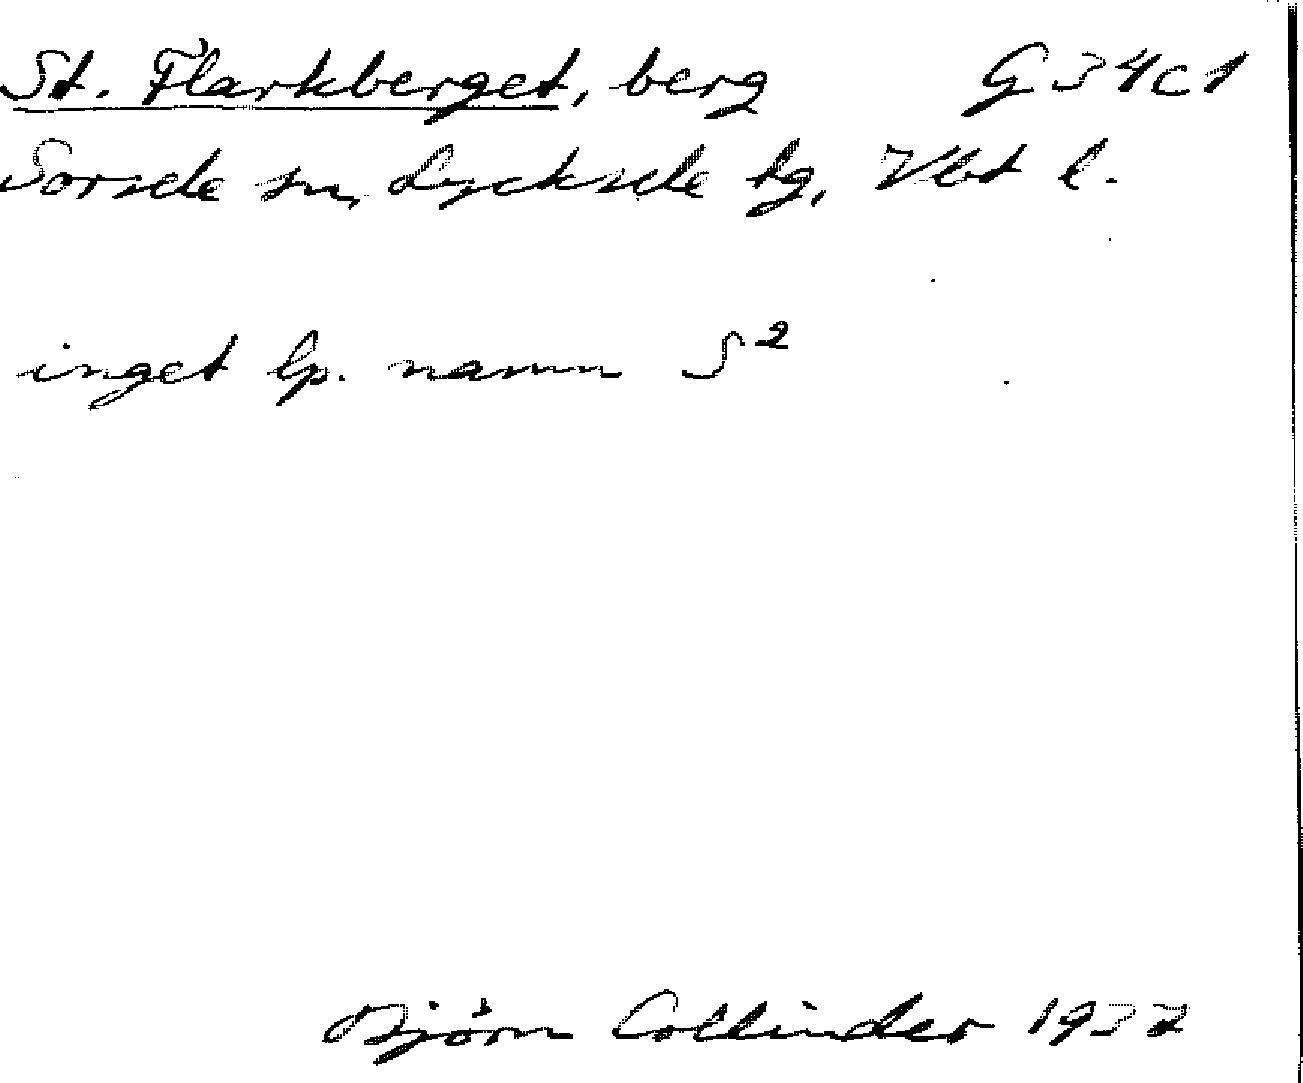 St. Flarkberget, berg G 34c1
Sorsele sn, Lycksele tg, Vbt l.
inget lp. namn S²
Björn Collinder 1937